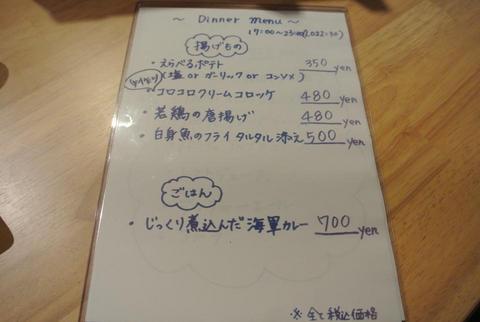 ～ Dinner menu ～
17:00～23:00(L.O22:30)
揚げもの
・えらべるポテト 350 yen
(塩 or ガーリック or コンソメ)
・コロコロクリームコロッケ 480 yen
・若鶏の唐揚げ 480 yen
・白身魚のフライ タルタル添え 500 yen
ごはん
・じっくり煮込んだ海軍カレー 700 yen
※全て税込価格